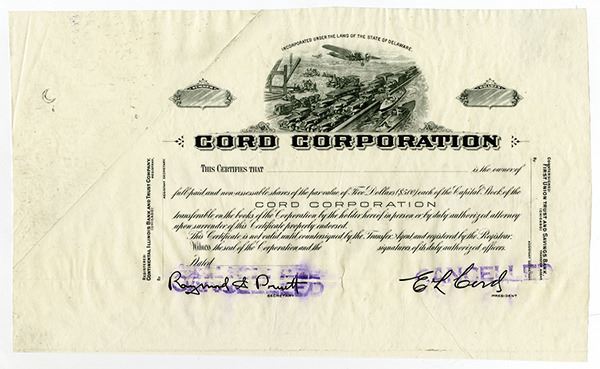 INCORPORATED UNDER THE LAWS OF THE STATE OF DELAWARE.
NUMBER
SHARES
CORD CORPORATION
THIS CERTIFIES THAT is the owner of
full paid and non-assessable shares of the par value of Five Dollars ($5.00) each of the Capital Stock of the
CORD CORPORATION
transferable on the books of the Corporation by the holder hereof in person or by duly authorized attorney
upon surrender of this Certificate properly endorsed.
This Certificate is not valid until countersigned by the Transfer Agent and registered by the Registrar.
Witness the seal of the Corporation and the signatures of its duly authorized officers.
Dated
CANCELLED
Raymond S. Pruitt
SECRETARY
E L Cord
PRESIDENT
REGISTERED
CONTINENTAL ILLINOIS BANK AND TRUST COMPANY,
BY
COUNTERSIGNED
FIRST UNION TRUST AND SAVINGS BANK,
BY